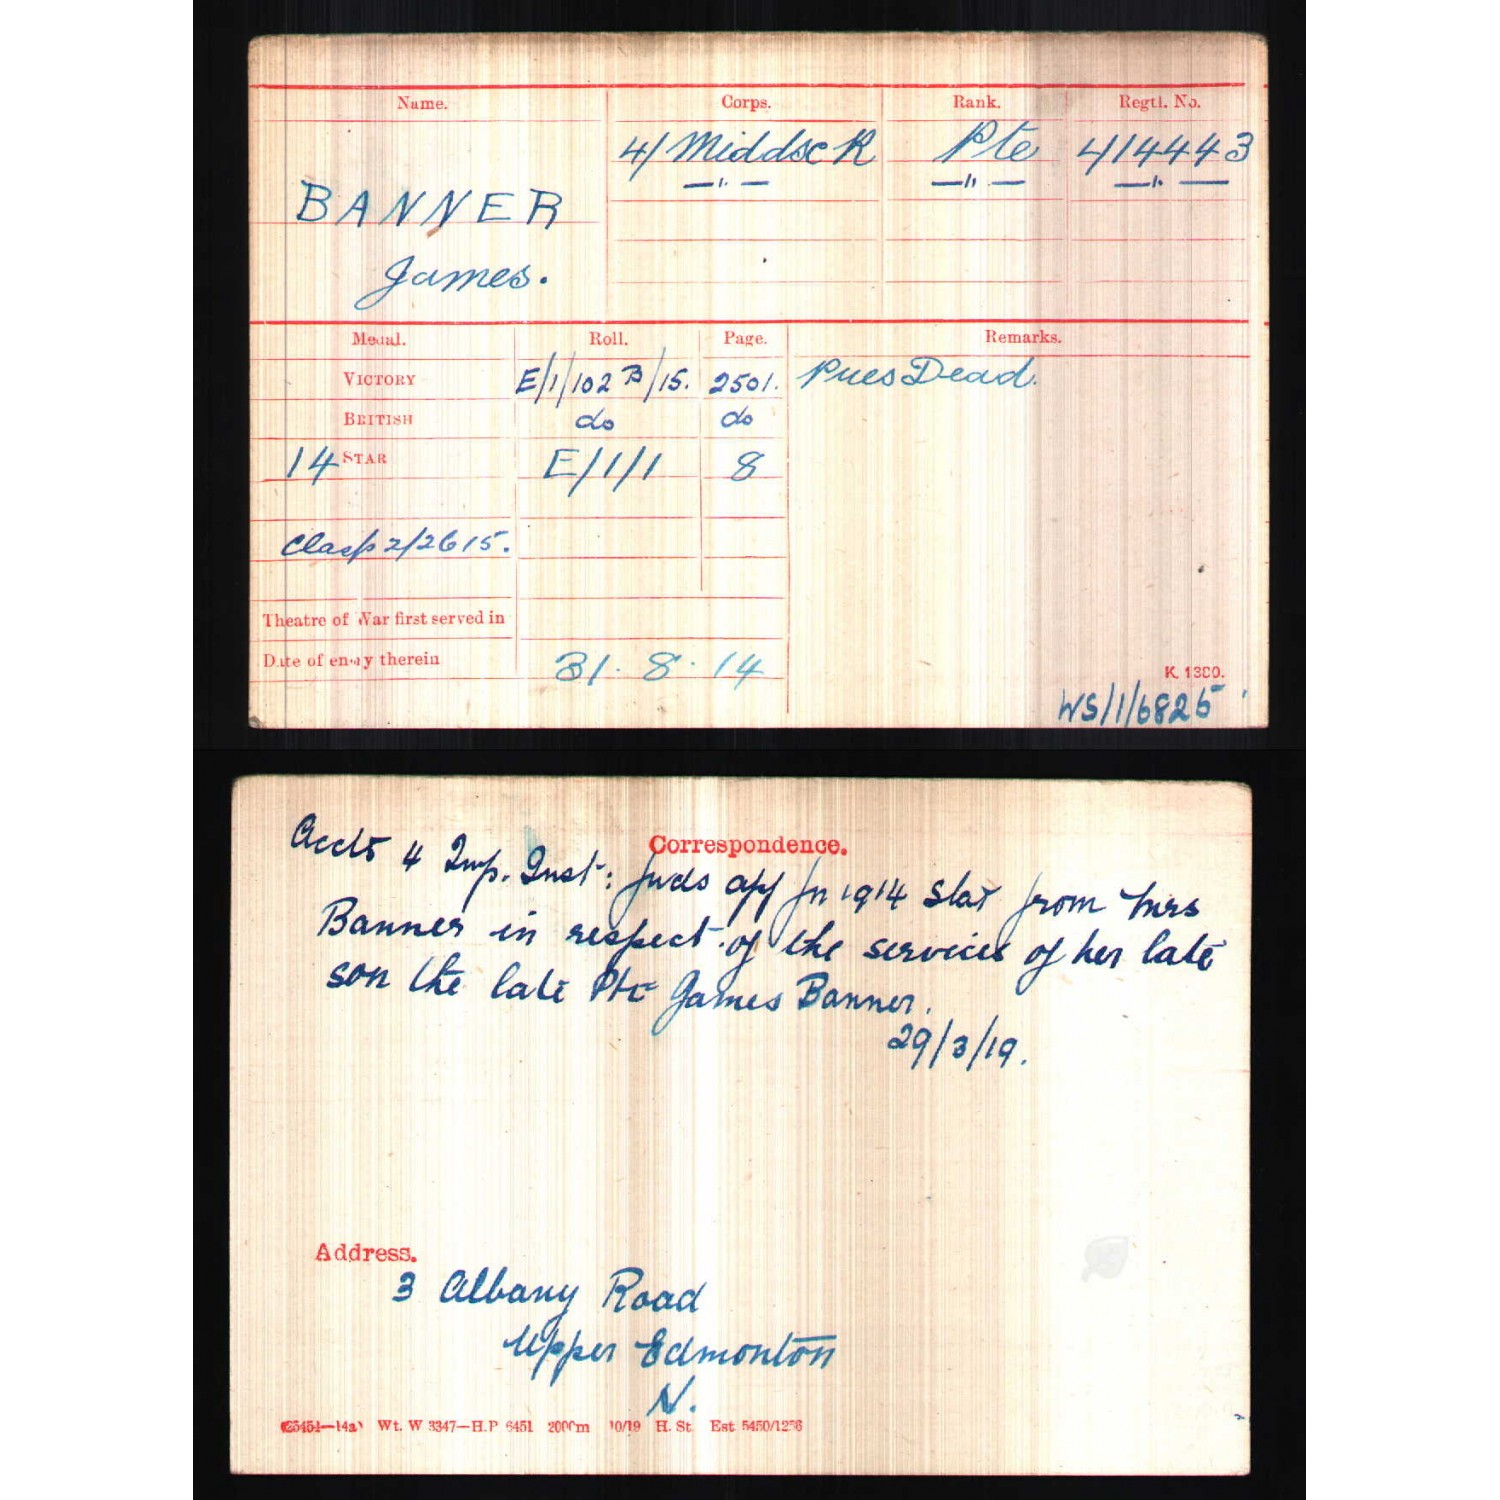 Name. Corps. Rank. Regtl. No.
4/ Middsx R Pte 4/14443
—"— —"— —"—
BANNER
James.
Medal. Roll. Page. Remarks.
VICTORY E/1/102 B/15. 2501. Pres Dead.
BRITISH do do
14 STAR E/1/1 8
Clasp 2/2615.
Theatre of War first served in
Date of entry therein 31. 8. 14
K. 1380.
WS/1/6825
Correspondence.
4 Imp. Inst: fwds app fr 1914 Star from Mrs
Banner in respect of the services of her late
son the late Pte James Banner.
29/3/19.
Address.
3 Albany Road
Upper Edmonton
N.
Wt. W 3347—H.P 6451 2000m 10/19 H. St. Est. 5450/1256